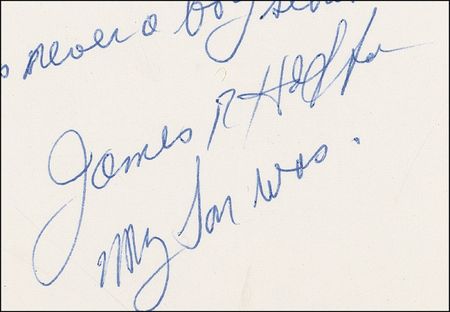 never a boy
James R Hoffa
My Son was.